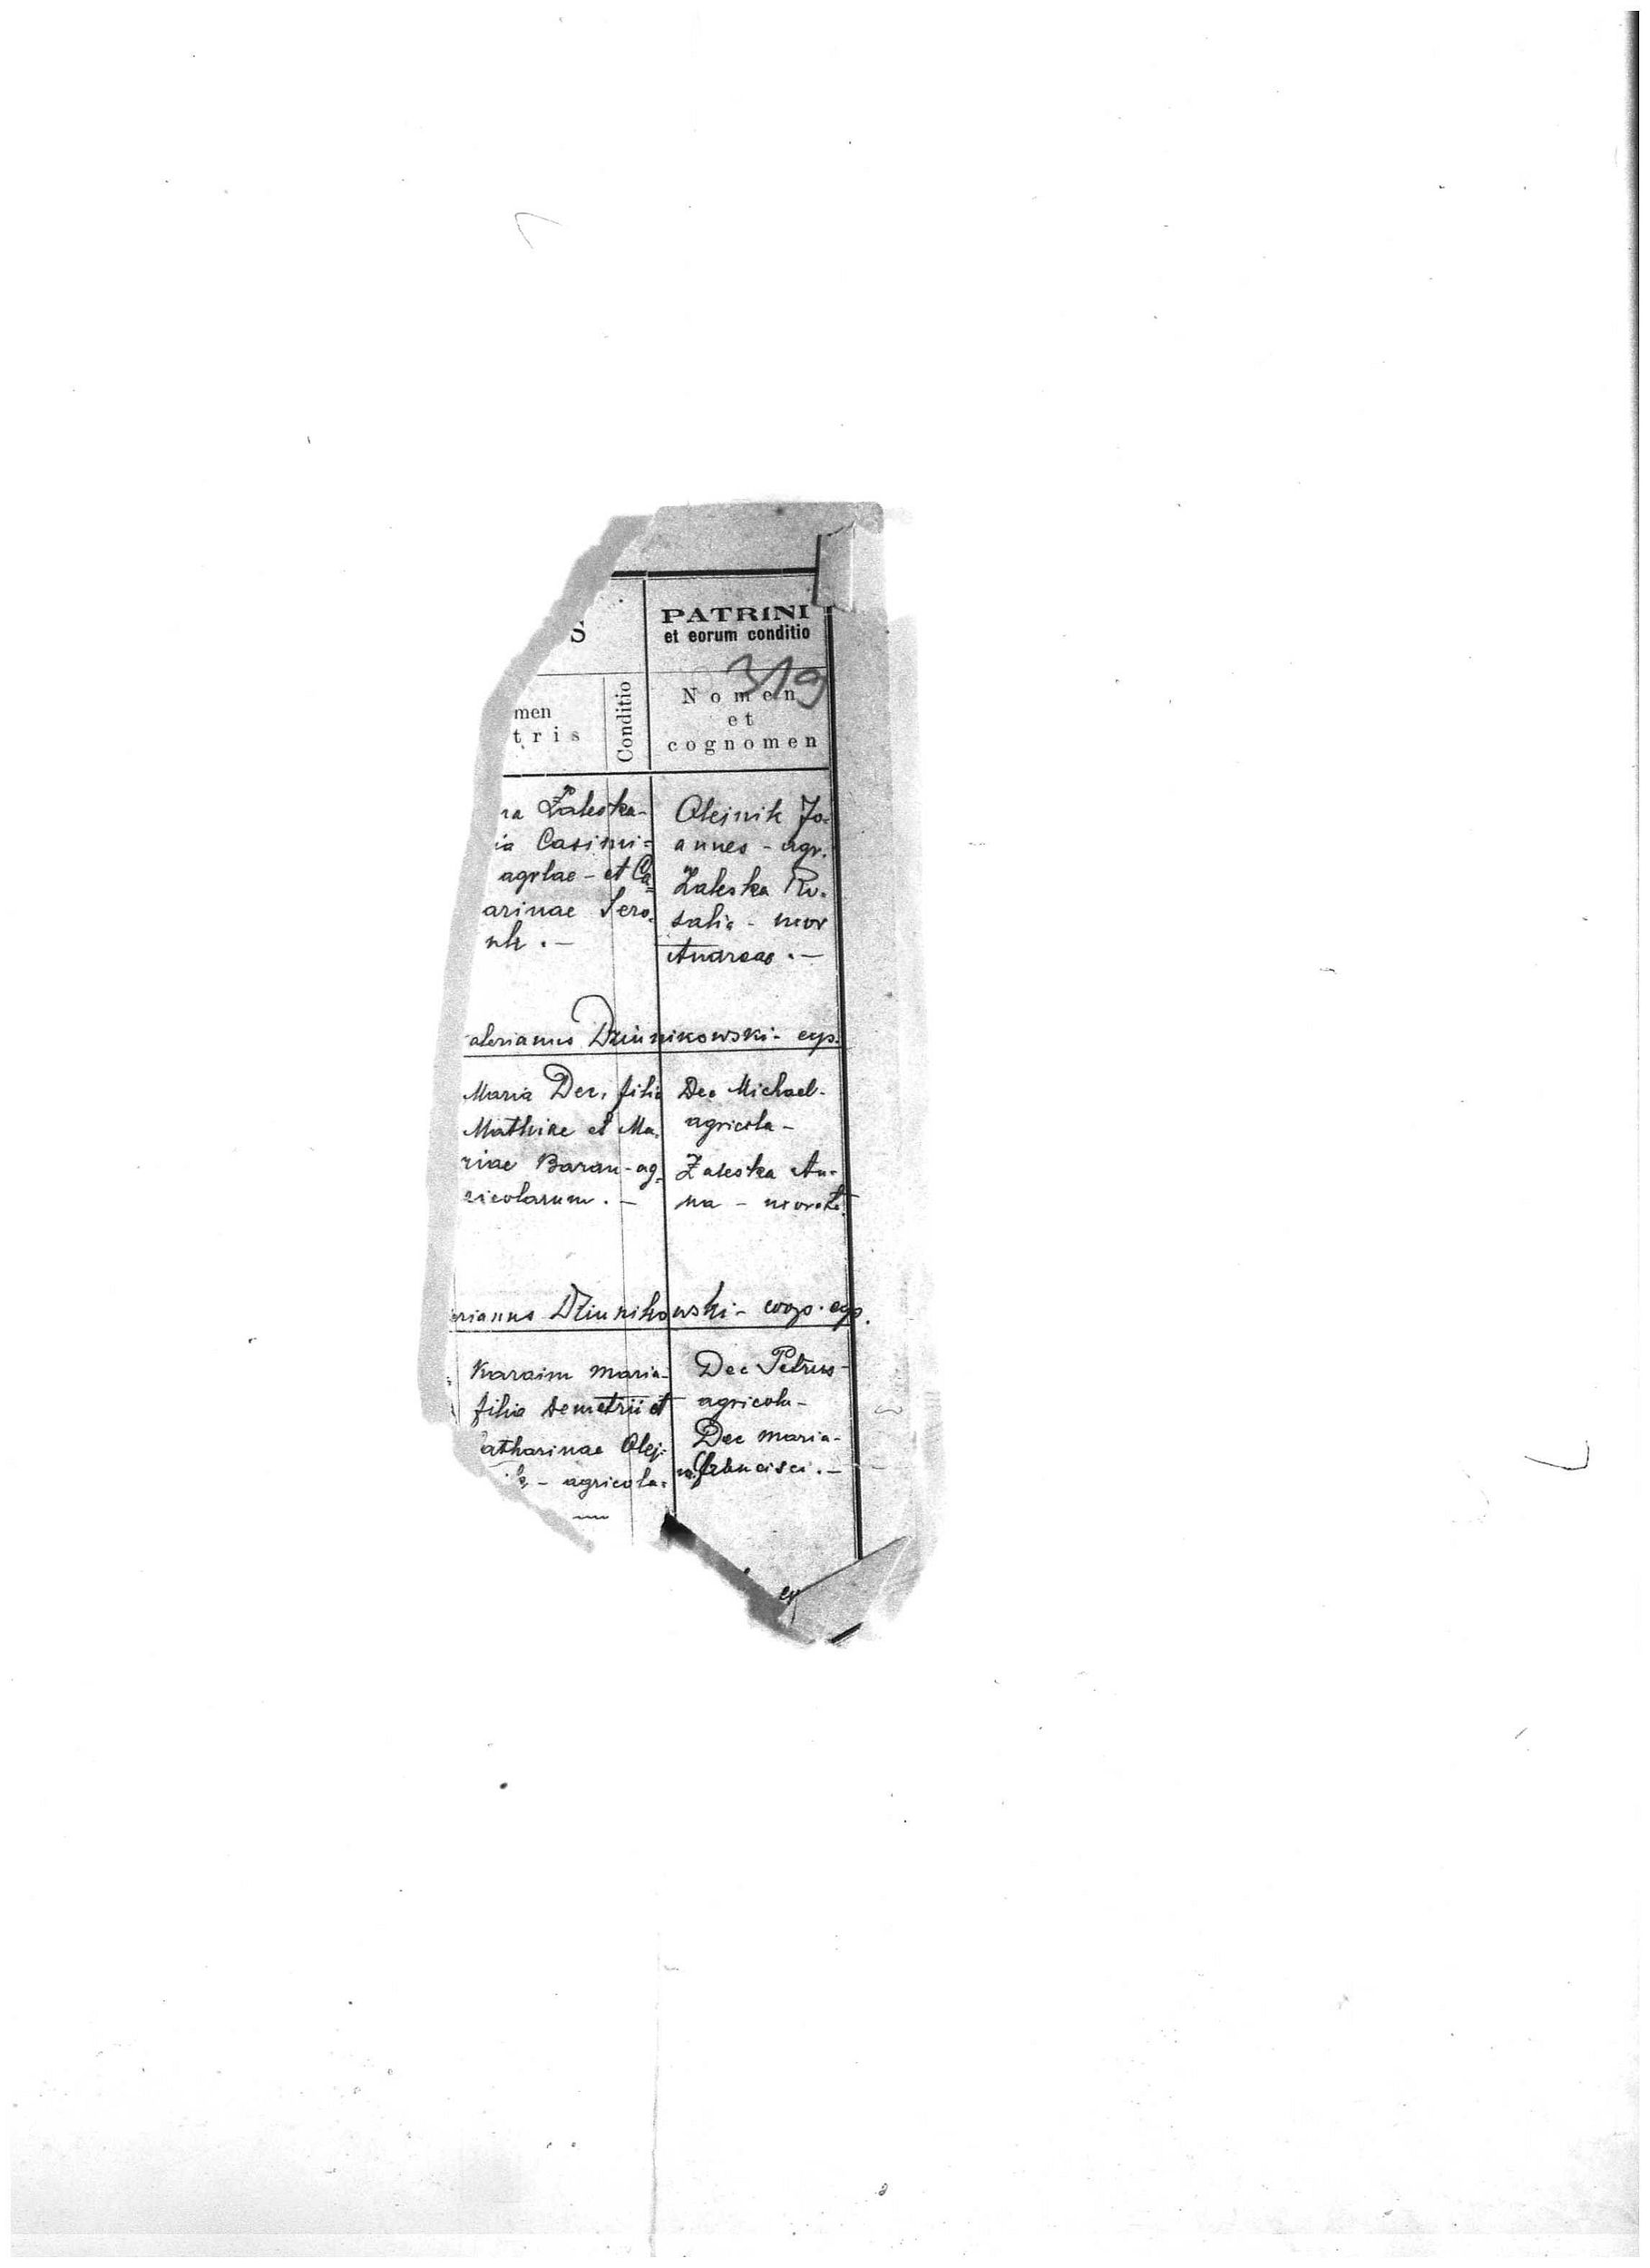 S
PATRINI
et eorum conditio
319
men
tris
Conditio
Nomen
et
cognomen
na Zaleska-
ia Casimi=
agrlae - et Ca=
arinae Sero=
nk . -
Olejnik Jo=
annes - agr.
Zaleska Ro=
salia - uxor
Andreae . -
alerianus Dziunikowski - exp.
Maria Dec, filia
Mathiae et Ma=
riae Baran - ag=
ricolarum . -
Dec Michael -
agricola -
Zaleska An=
na -
erianus Dziunikowski - coop. exp.
Karaim Maria -
filia Demetrii et
atharinae Olej=
k - agricola=
Dec Petrus -
agricola -
Dec Maria -
Francisci . -